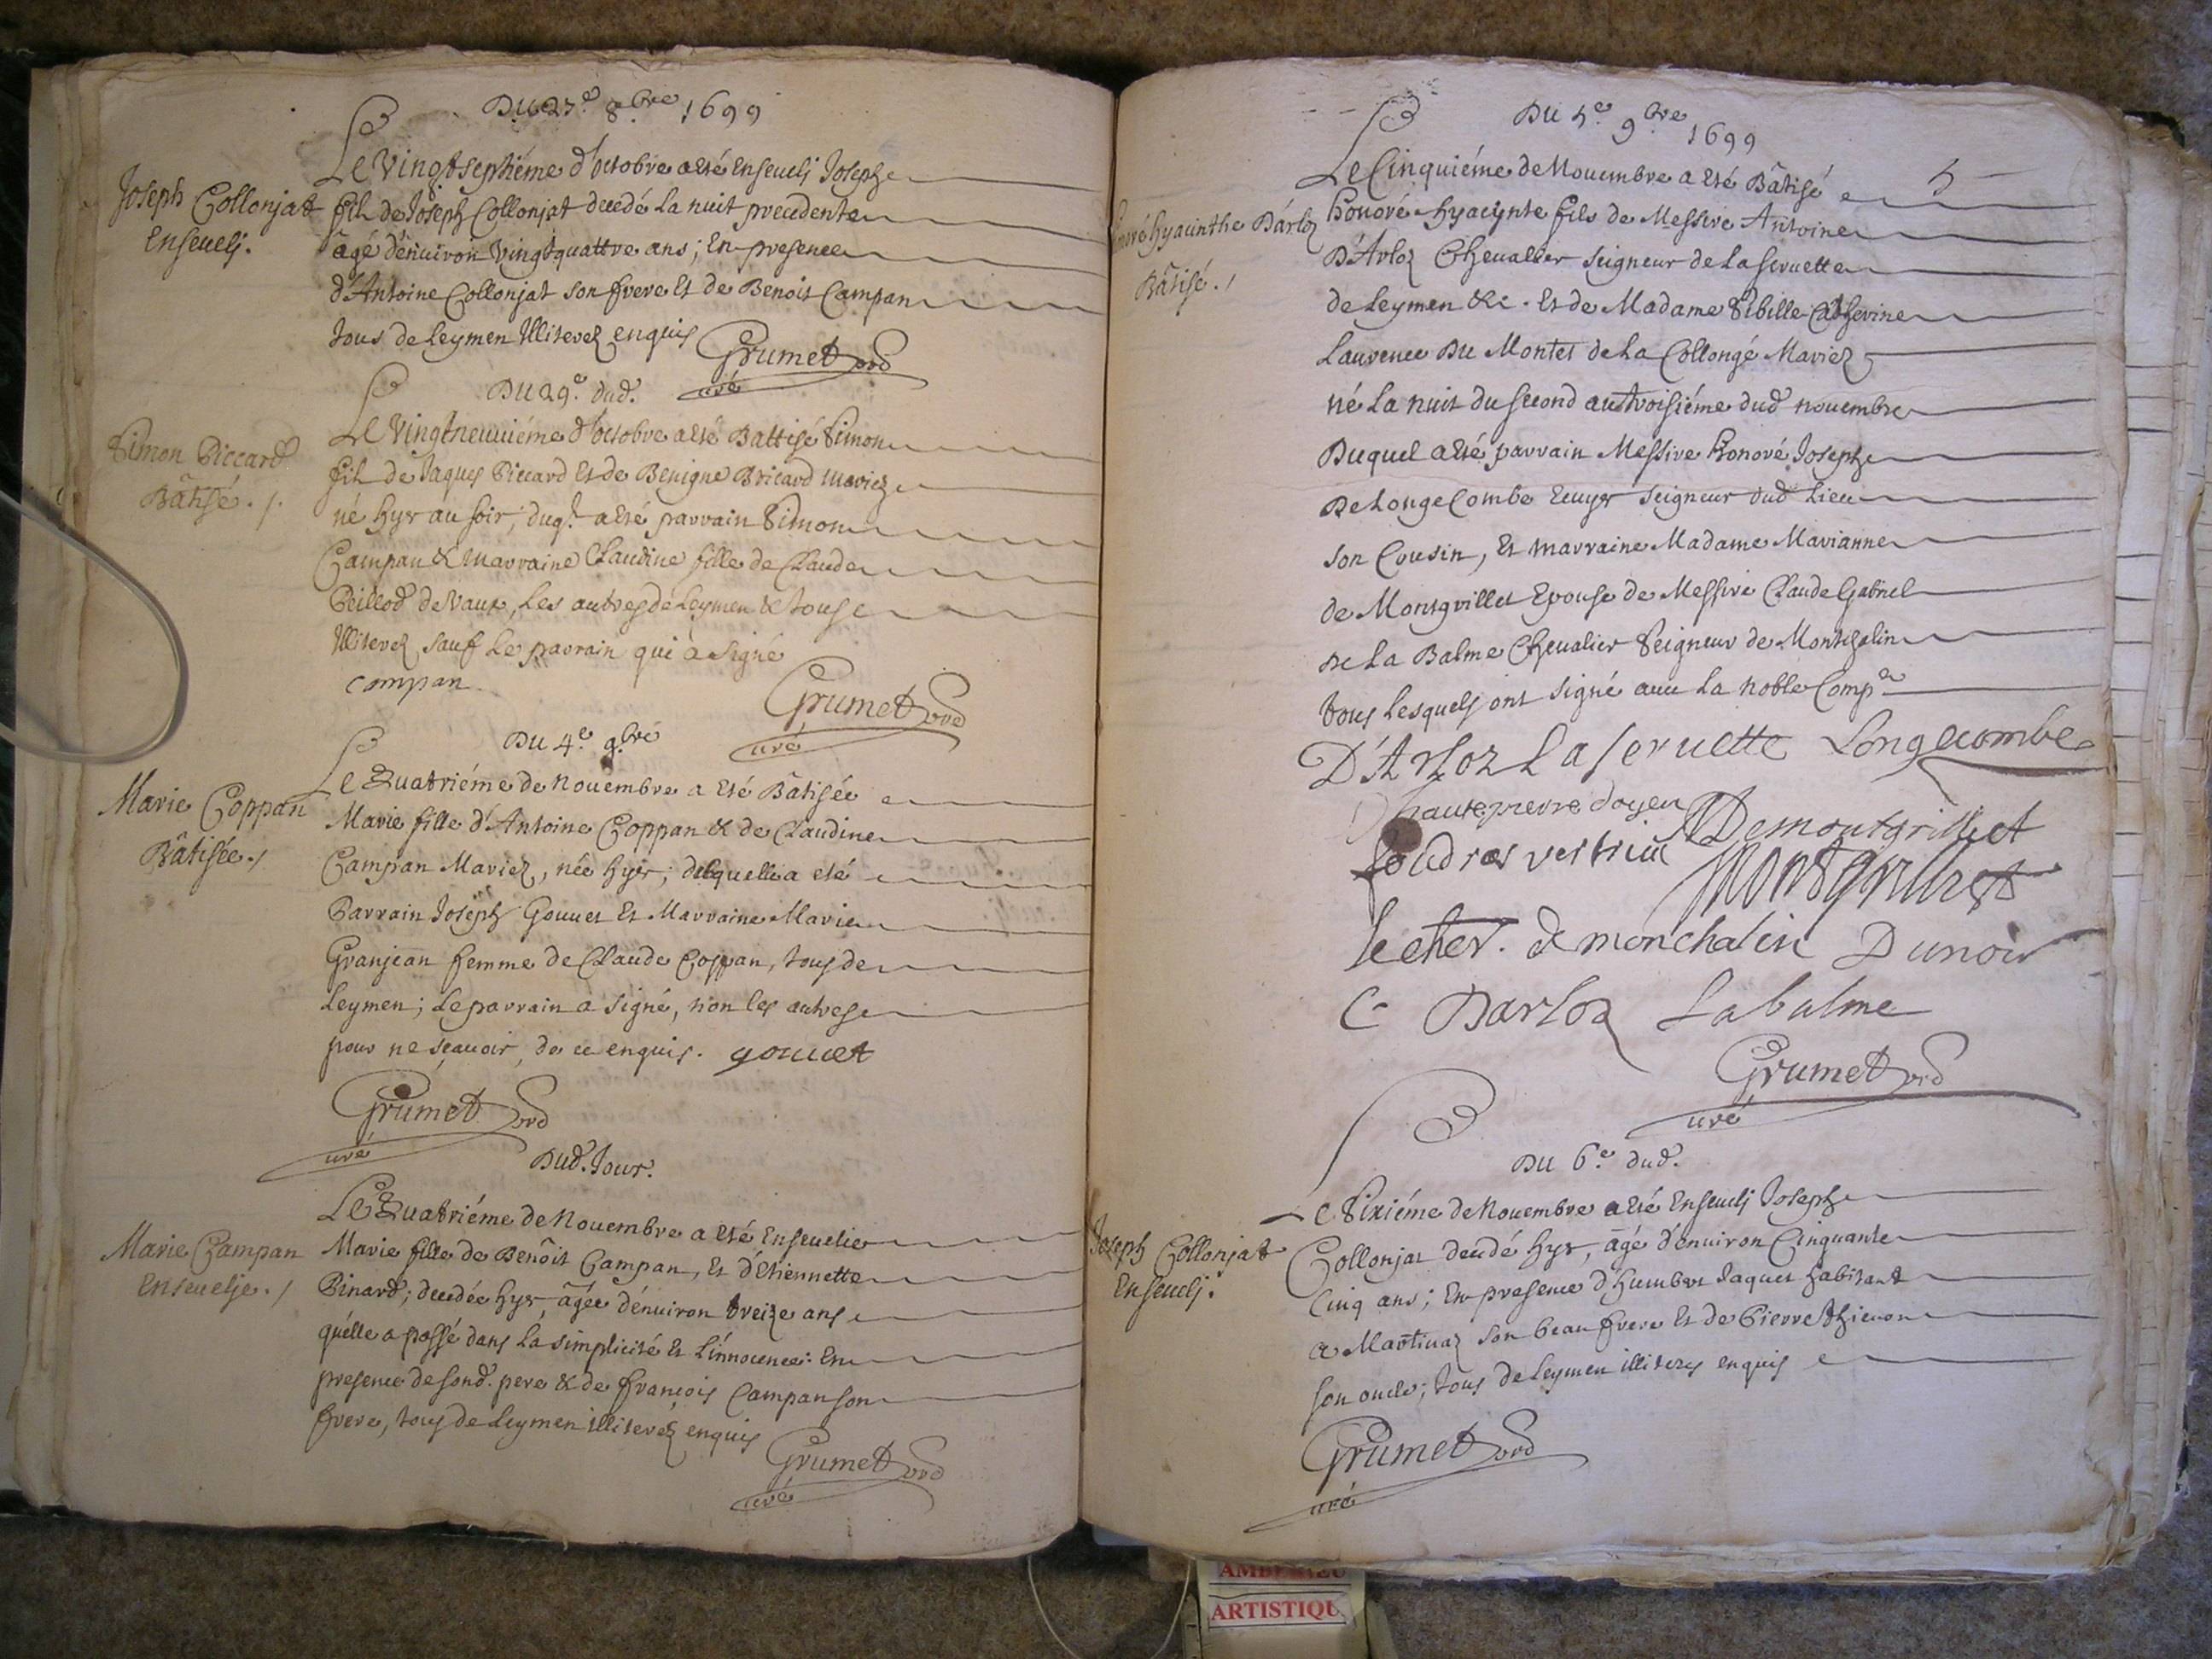 Du 27.e 8.bre 1699
Joseph Collonjat
Enseueli.
Le Vingtseptiéme d'octobre a esté Enseueli Joseph
fils de Joseph Collonjat decedé La nuit precedente
âgé d'enuiron Vingtquattre ans; En presence
d'Antoine Collonjat son frere Et de Benoit Campan
tous de Leymen Illiterez enquis
Grumet Curé
Du 29.e dud.
Simon Piccard
Bâtisé./.
Le Vingtneuuiéme d'octobre a esté Battisé Simon
fils de Jaques Piccard Et de Benigne Bricard mariez
né hyer au soir; duq.l a esté parrain Simon
Campan & Marraine Claudine fille de Claude
Peillod de Vaux, Les autres de Leymen & tous
Illiterez sauf Le parrain qui à signé
Campan
Grumet Curé
Du 4.e 9.bre
Marie Coppan
Bâtisée./
Le Quatriéme de Nouembre a esté Bâtisée
Marie fille d'Antoine Coppan & de Claudine
Campan Mariez, née hyer; delaquelle a esté
Parrain Joseph Gouuet Et Marraine Marie
Granjean femme de Claude Coppan, tous de
Leymen; Le parrain a signé, non les autres
pour ne sçauoir, de ce enquis. gouuet
Grumet Curé
Dud. Jour.
Marie Campan
Enseuelie./
Le Quatriéme de Nouembre a esté Enseuelie
Marie fille de Benôit Campan, Et d'Etiennette
Pinard; decedée hyer, âgée d'enuiron treize ans
qu'elle a passé dans La simplicité Et L'innocence: En
presence de sond. pere & de françois Campan son
frere, tous de Leymen illiterez enquis
Grumet Curé
Du 5.e 9.bre 1699
5
Honoré hyacinthe Dárloz
Bâtisé./
Le Cinquiéme de Nouembre a Eté Bâtisé
honoré hyacynte fils de Messire Antoine
D'Arloz Cheualier Seigneur de La Seruette
de Leymen &c. Et de Madame Sibille Catherine
Laurence Du Montet de La Collonge Mariez
né La nuit du second au troisiéme dud. nouembre
Duquel a esté parrain Messire honoré Joseph
De Longecombe Ecuyer Seigneur dud. Lieu
son Cousin, Et marraine Madame Marianne
de Montgrillet Epouse de Messire Claude Gabriel
De La Balme Cheualier Seigneur de Montchalin
tous Lesquels ont signé auec La noble Comp.e
D'Arloz La seruette Longecombe
hautepierre doyen MDemontgrillet
foudras Montgrillet
le cher. de monchalin Dunoir
C Darloz Labalme
Grumet Curé
Du 6.e dud.
Joseph Collonjat
Enseueli.
Le Sixiéme de Nouembre a Eté Enseueli Joseph
Collonjat decedé hyer, âgé d'enuiron Cinquante
Cinq ans; En presence d'humbert Jaquet habitant
a Martinaz son beaufrere Et de Pierre Thieuon
son oncle; tous de Leymen illiterez enquis
Grumet Curé
AMBERIEU
ARTISTIQU